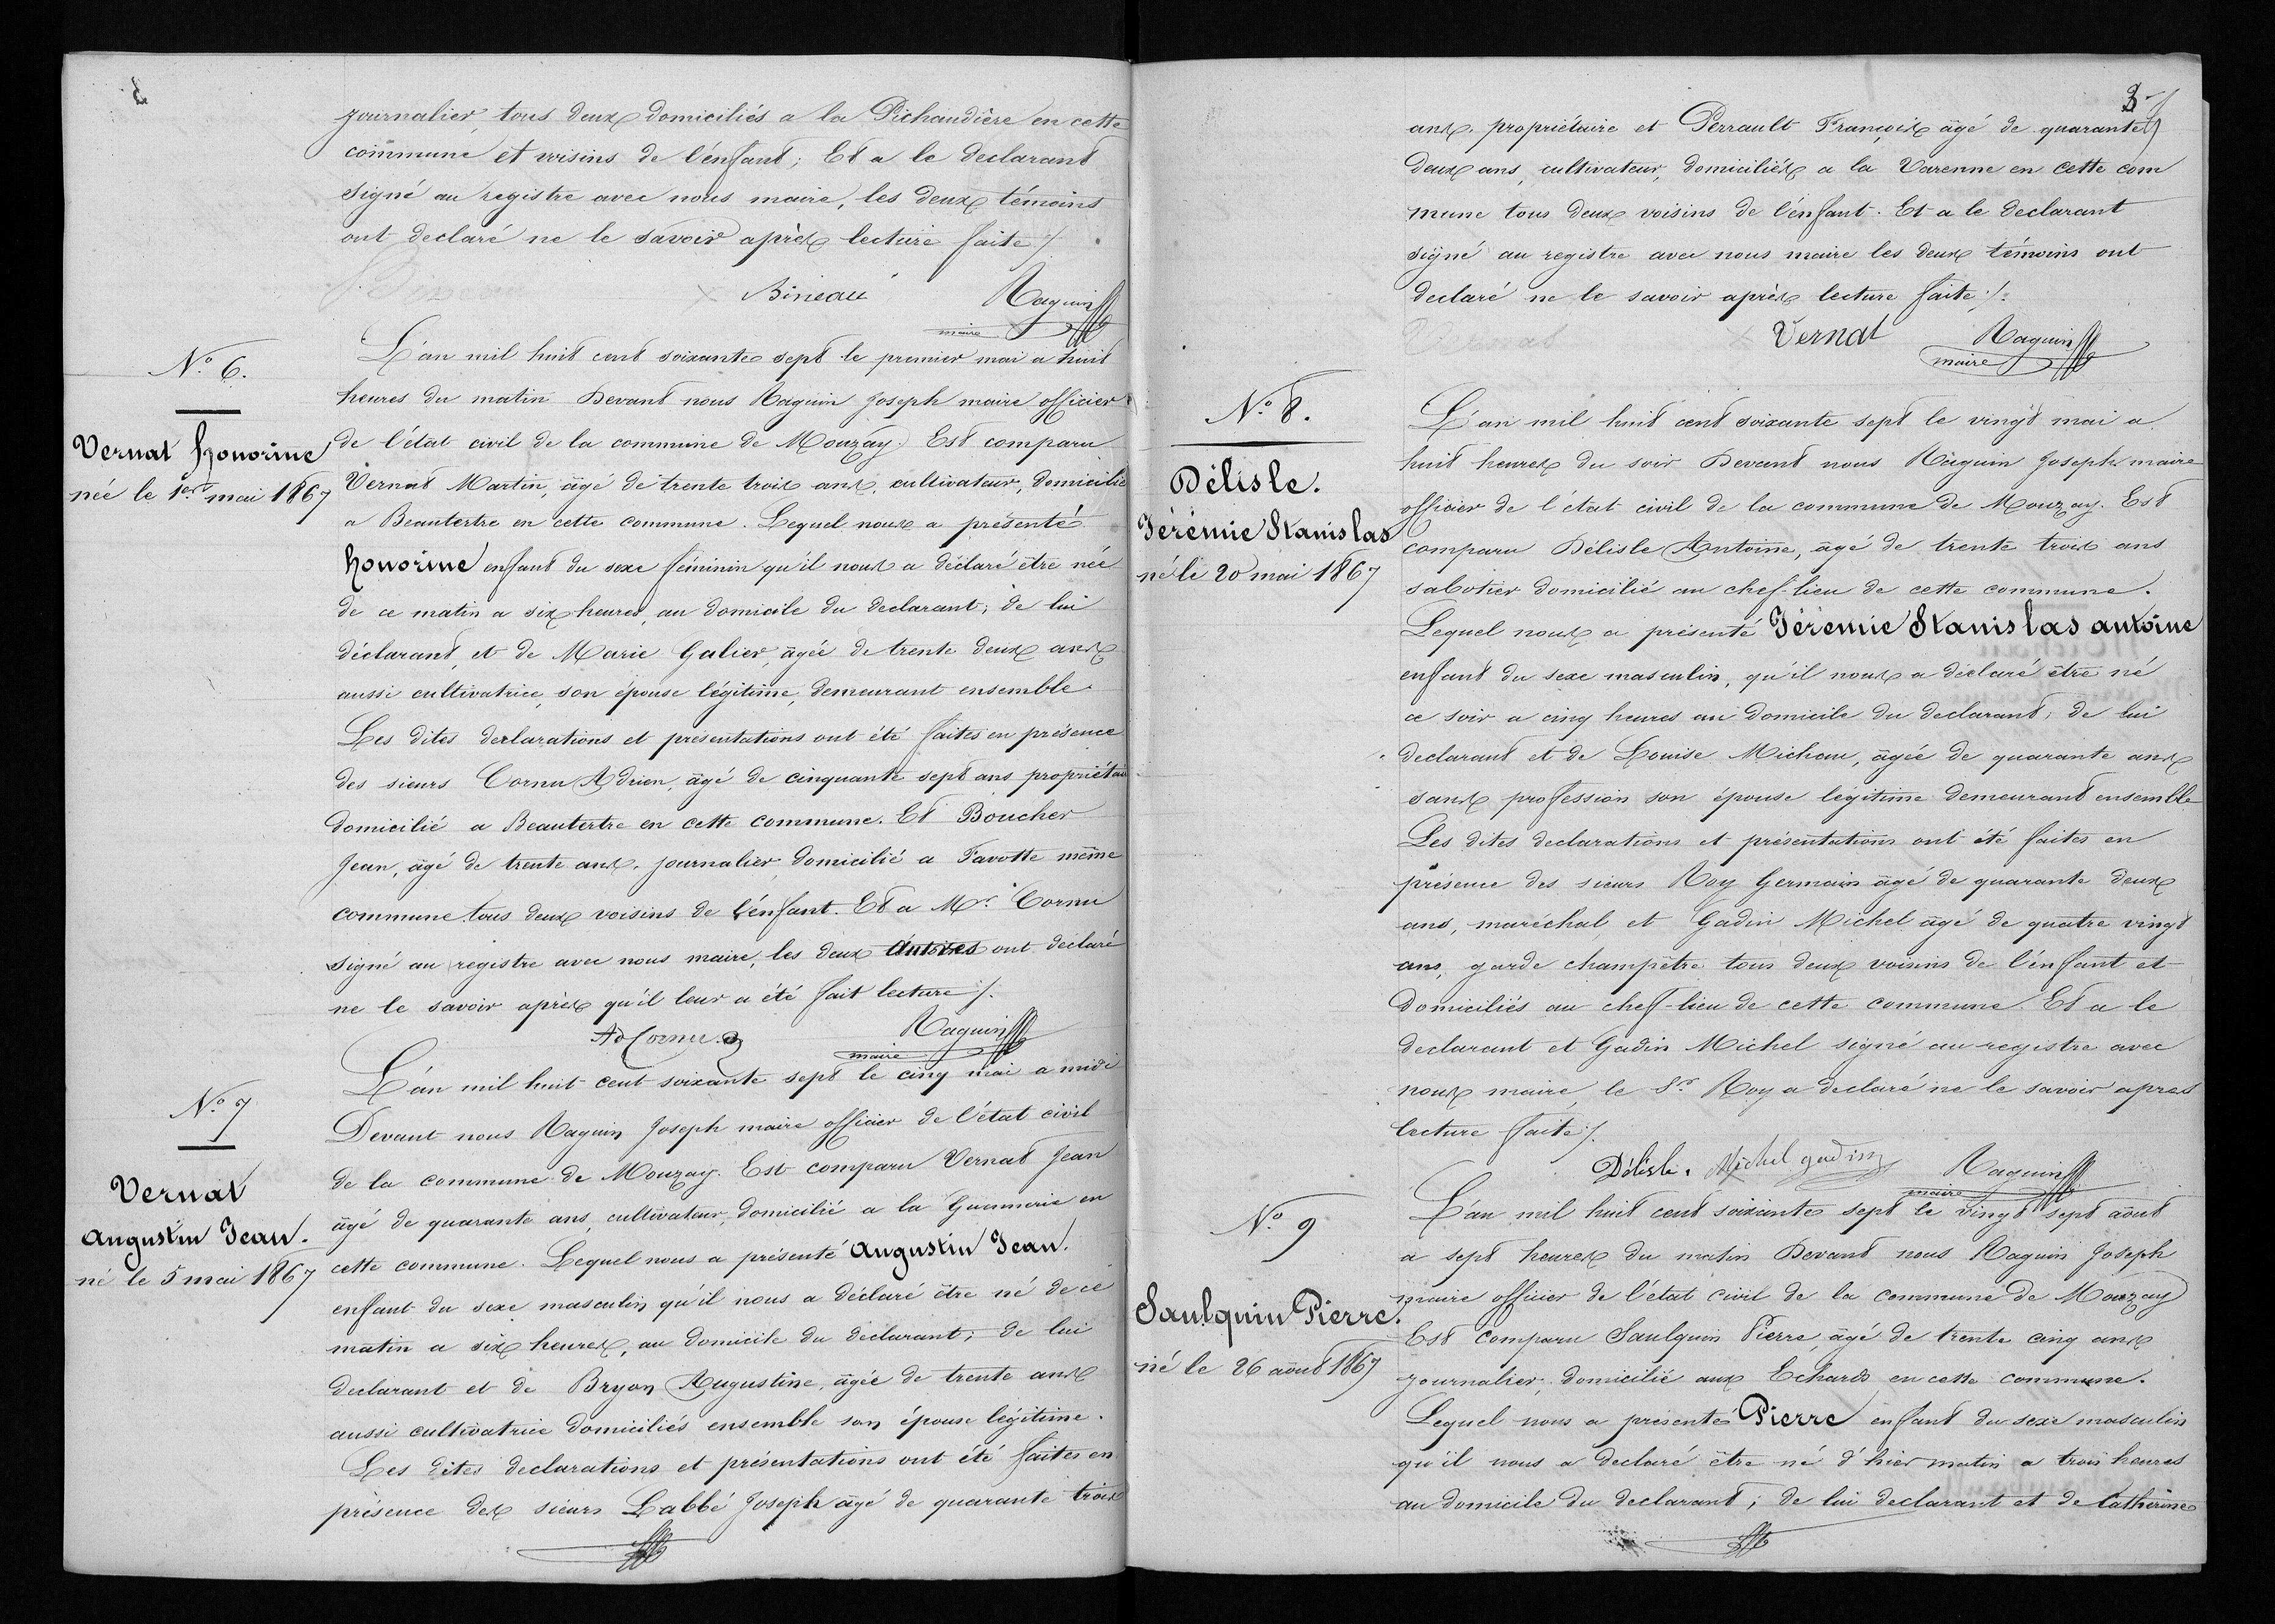 journalier, tous deux domiciliés a la Pichaudière en cette
commune et voisins de l'énfant; Et a le declarant
signé au registre avec nous maire, les deux témoins
ont declaré ne le savoir après lecture faite ./.
Bineau Raguin
maire
N.o 6.
Vernat honorine
née le 1er mai 1867
L'an mil huit cent soixante sept le premier mai a huit
heures du matin Devant nous Raguin Joseph maire officier
de l'état civil de la commune de Mouzay. Est comparu
Vernat Martin, âgé de trente trois ans, cultivateur, domicilié
a Beautertre en cette commune. Lequel nous a présenté
honorine enfant du sexe féminin qu'il nous a déclaré être née
de ce matin a six heures, au domicile du declarant; de lui
déclarant, et de Marie Galier, âgée de trente deux ans
aussi cultivatrice, son épouse légitime, demeurant ensemble.
Les dites declarations et présentations ont été faites en présence
des sieurs Cornu Adrien, âgé de cinquante sept ans propriétaire
domicilié a Beautertre en cette commune. Et Boucher
Jean, âgé de trente ans, journalier domicilié a Favotte même
commune, tous deux voisins de l'énfant. Et a Mr. Cornu
signé au registre avec nous maire, les deux autres ont declaré
ne le savoir après qu'il leur a été fait lecture ./.
Ad Cornu Raguin
maire
N.o 7
Vernat
Augustin Jean.
né le 5 mai 1867
L'an mil huit cent soixante sept le cinq mai a midi
Devant nous Raguin Joseph maire officier de l'état civil
de la commune de Mouzay. Est comparu Vernat Jean
âgé de quarante ans, cultivateur, domicilié a la en
cette commune. Lequel nous a présenté Augustin Jean.
enfant du sexe masculin qu'il nous a déclaré être né de ce
matin a six heures, au domicile du déclarant; de lui
declarant et de Bryon Augustine, âgée de trente ans
aussi cultivatrice domiciliés ensemble son épouse légitime.
Les dites declarations et présentations ont été faites en
présence des sieurs Labbé Joseph âgé de quarante trois
3
ans, propriétaire et Perrault François âgé de quarante
deux ans, cultivateur, domiciliés a la Varenne en cette com
mune tous deux voisins de l'énfant. Et a le declarant
signé au registre avec nous maire les deux témoins ont
declaré ne le savoir après lecture faite ./.
Vernat Raguin
maire
N.o 8.
Délisle.
Jérémie Stanislas
né le 20 mai 1867
L'an mil huit cent soixante sept le vingt mai a
huit heures du soir Devant nous Raguin Joseph maire
officier de l'état civil de la commune de Mouzay. Est
comparu Délisle Antoine, âgé de trente trois ans
sabotier domicilié au chef-lieu de cette commune.
Lequel nous a présenté Jérémie Stanislas antoine
enfant du sexe masculin, qu'il nous a déclaré être né
ce soir a cinq heures au domicile du declarant, de lui
declarant et de Louise Michau, âgée de quarante ans
sans profession son épouse légitime demeurant ensemble
Les dites declarations et présentations ont été faites en
présence des sieurs Roy Germain âgé de quarante deux
ans, maréchal, et Gadin Michel âgé de quatre vingt
ans, garde champêtre tous deux voisins de l'énfant et
domiciliés au chef-lieu de cette commune. Et a le
declarant et Gadin Michel signé au registre avec
nous maire, le Sr. Roy a declaré ne le savoir apres
lecture faite ./.
Délisle. Michel gadin Raguin
maire
N.o 9
Saulquin Pierre.
né le 26 aout 1867
L'an mil huit cent soixante sept le vingt sept aout
a sept heures du matin Devant nous Raguin Joseph
maire officier de l'état civil de la commune de Mouzay
Est comparu Saulquin Pierre, âgé de trente cinq ans
journalier, domicilié aux Echards en cette commune.
Lequel nous a présenté Pierre enfant du sexe masculin
qu'il nous a declaré être né d'hier matin a trois heures
au domicile du declarant; de lui declarant et de Cathérine